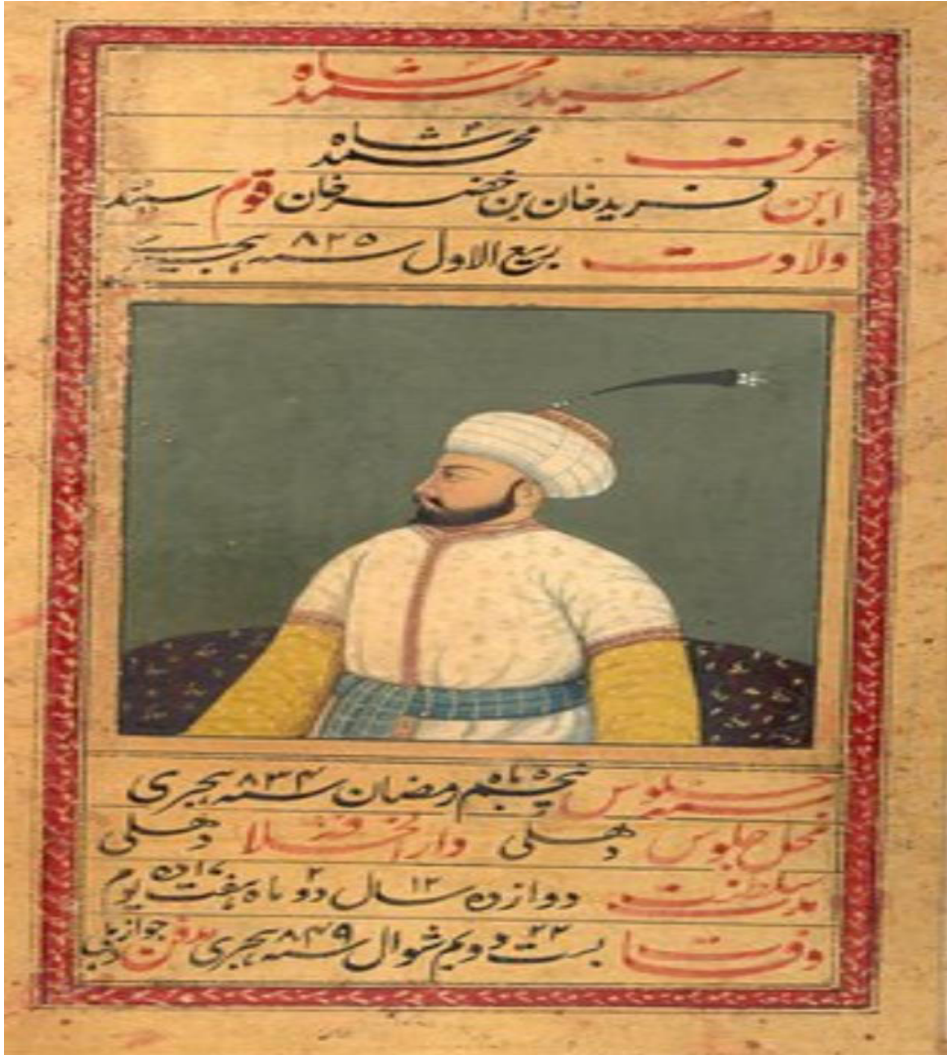 سید محمد شاه
عرف محمد شاه
ابن فرید خان بن خضر خان قوم سید
ولادت ربیع الاول سنه ۸۲۵ هجری
سنه جلوس پنجم ماه رمضان سنه ۸۳۴ هجری
محل جلوس دهلی دار الخلافة دهلی
مدت سلطنت دوازده ۱۲ سال دو ۲ ماه هفت یوم
وفات بست و دویم ۲۲ شوال سنه ۸۴۹ هجری مدفن